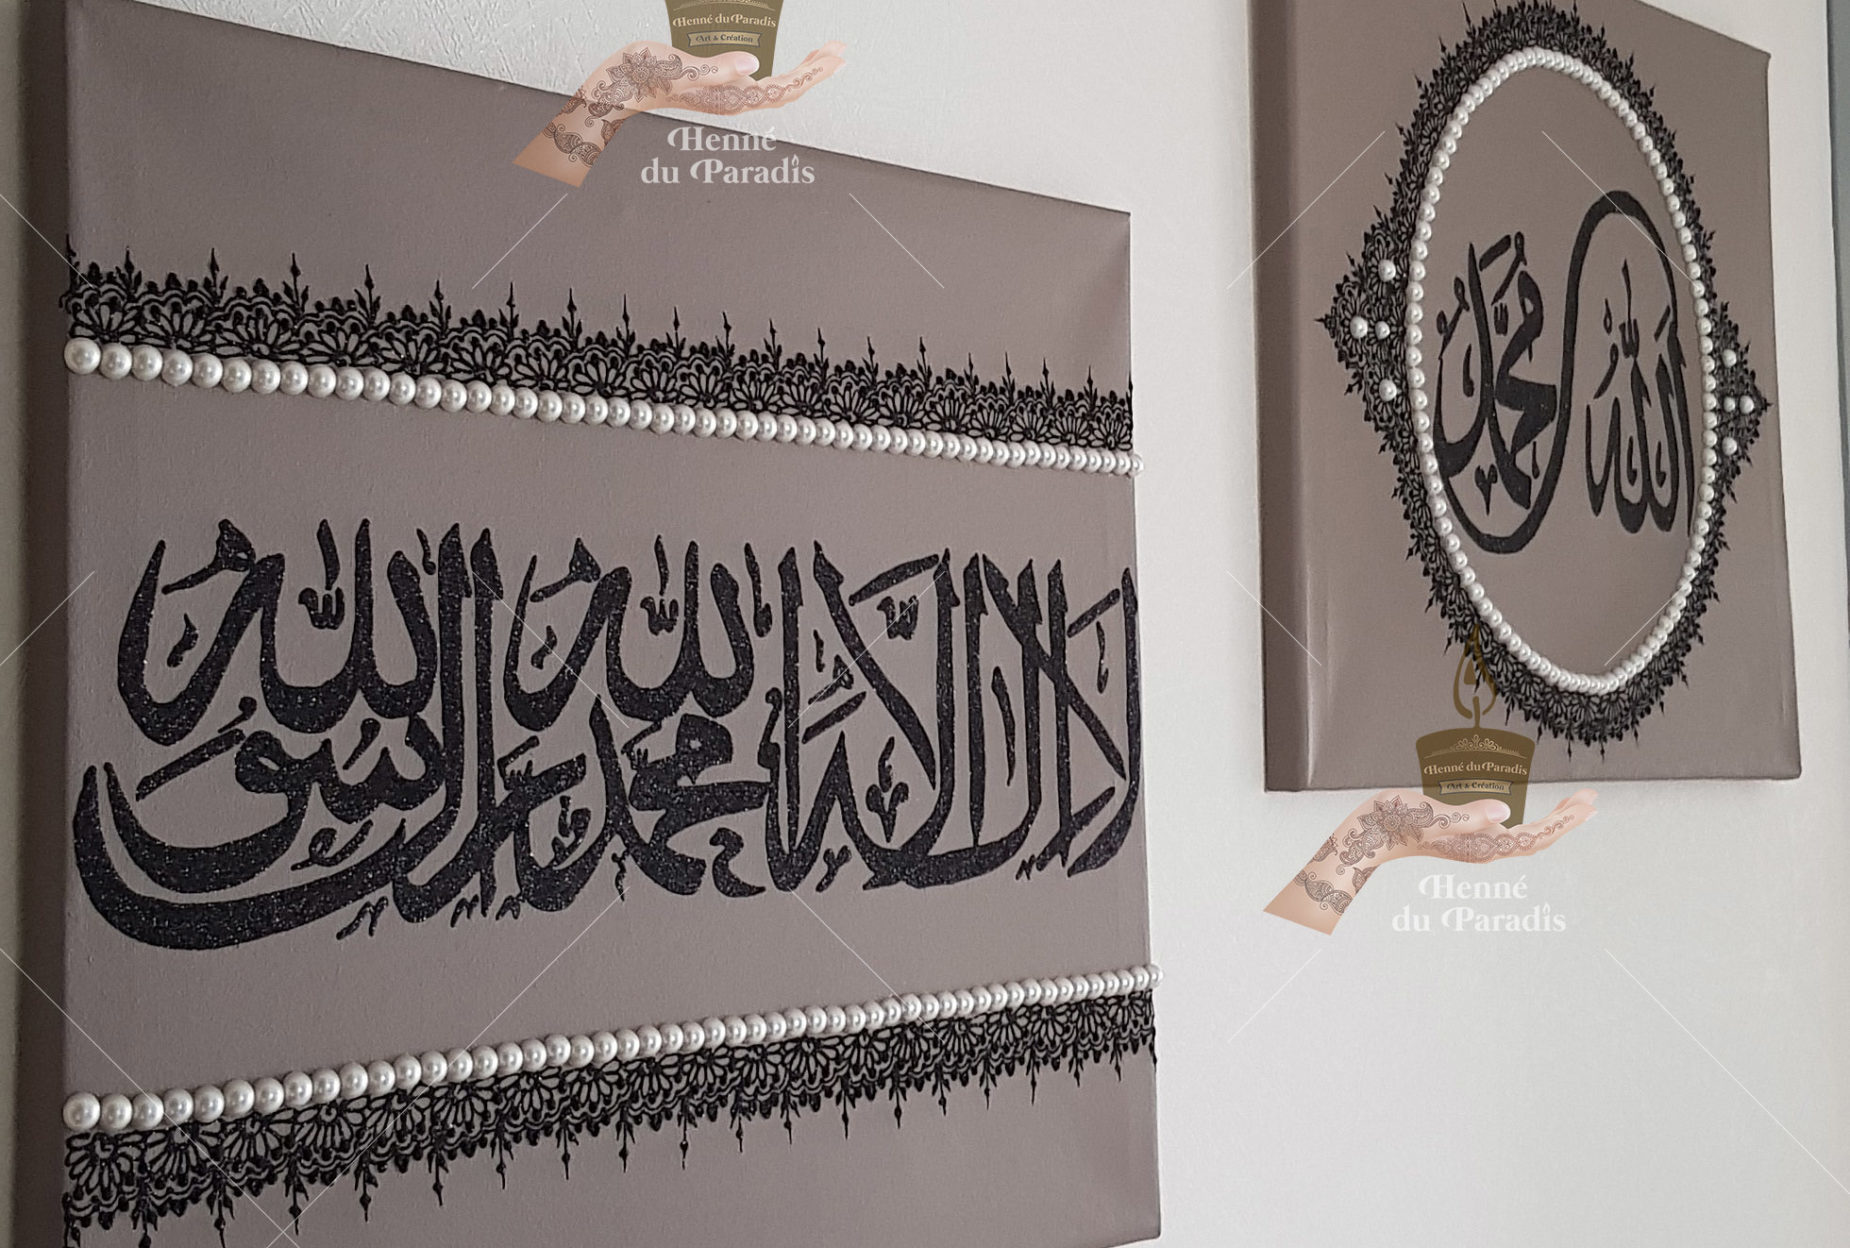 لا إله إلا الله محمد رسول الله
الله محمد
Henné du Paradis
Art & Création
Henné
du Paradis
Henné du Paradis
Art & Création
Henné
du Paradis